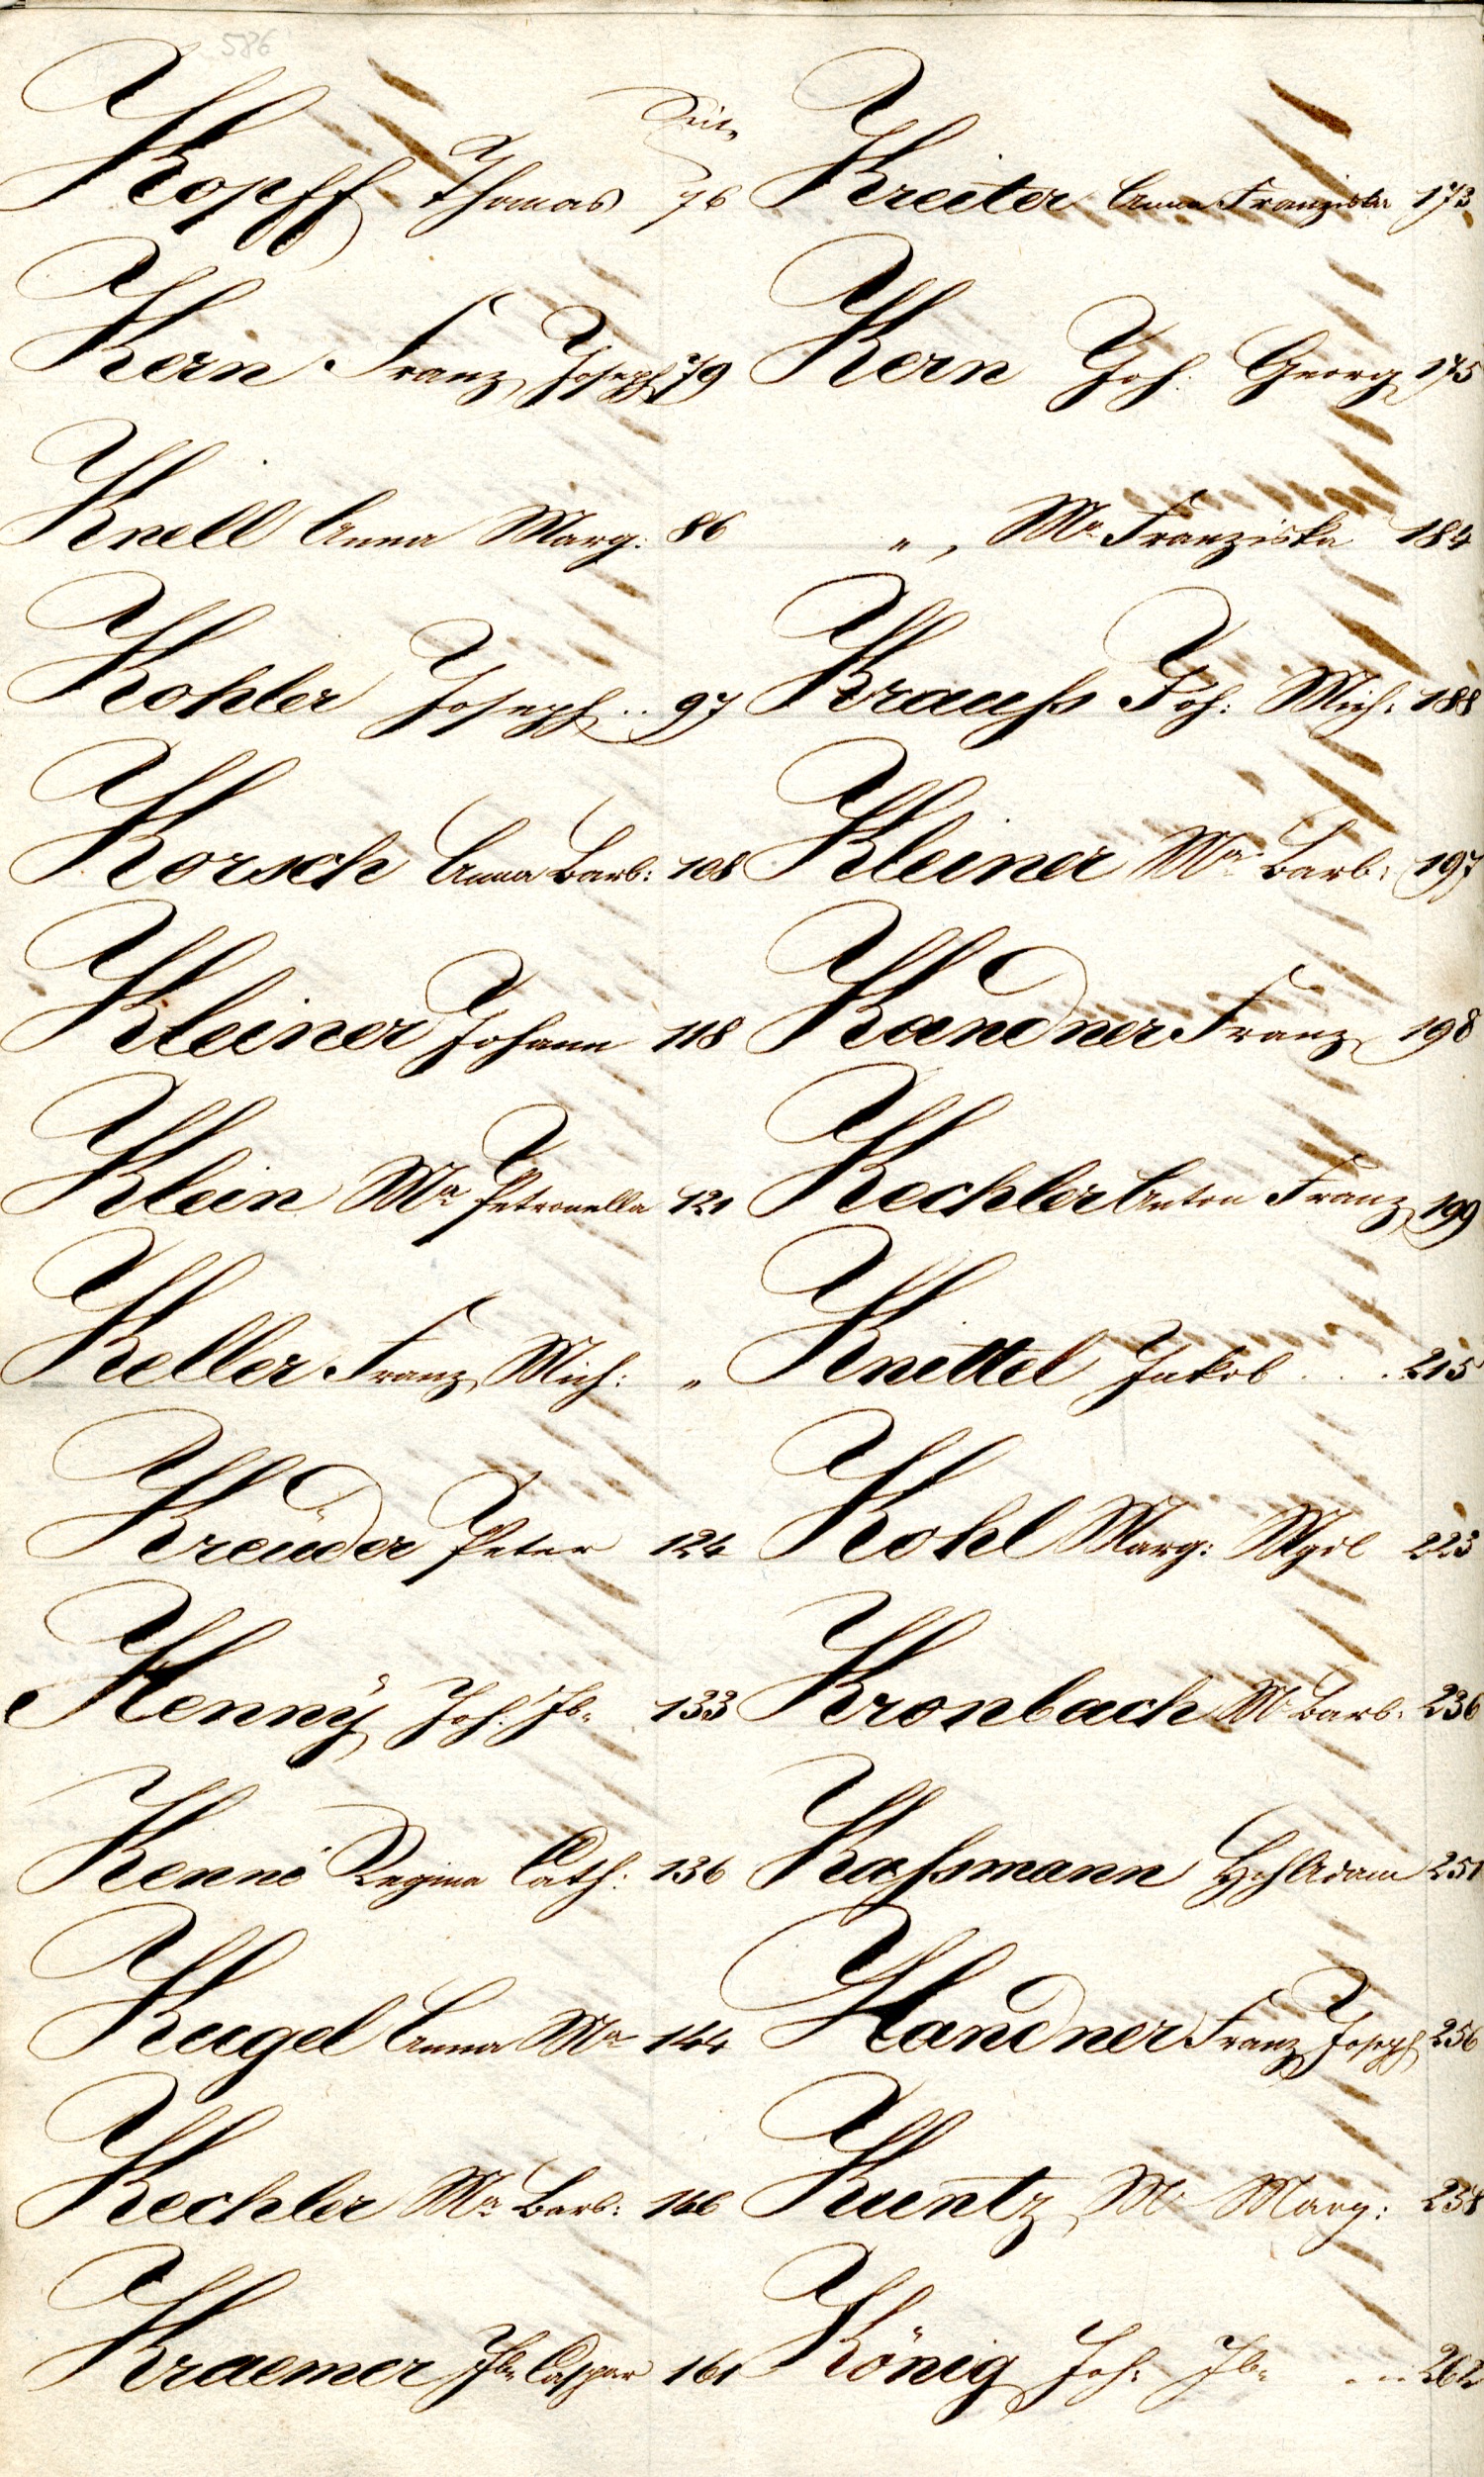 586
Seite
Kopff Thomas 76
Kern Franz Joseph 79
Knell Anna Marg: 86
Kohler Joseph .. 97
Korsch Anna Barb: 108
Kleiner Johann 118
Klein Ma Petronella 121
Keller Franz Mich: "
Kreüder Peter 124
Kenny Joh. Jb. 133
Kenni Regina Cath: 136
Kugel Anna Ma 144
Kechler Ma Barb: 146
Kraemer Jb. Caspar 161
Kreiter Anna Franziska 173
Kern Joh. Georg 175
" , Ma Franziska 184
Krauſs Joh: Mich: 188
Kleiner Ma Barb: 197
Kandner Franz 198
Kechler Anton Franz 199
Knittel Jakob . . . 215
Kohl Marg: Mgdl 223
Kronbach M. Barb: 236
Kaſsmann Adam 251
Kandner Franz Joseph 256
Kuntz M. Marg: 258
König Joh: Jb. ... 262